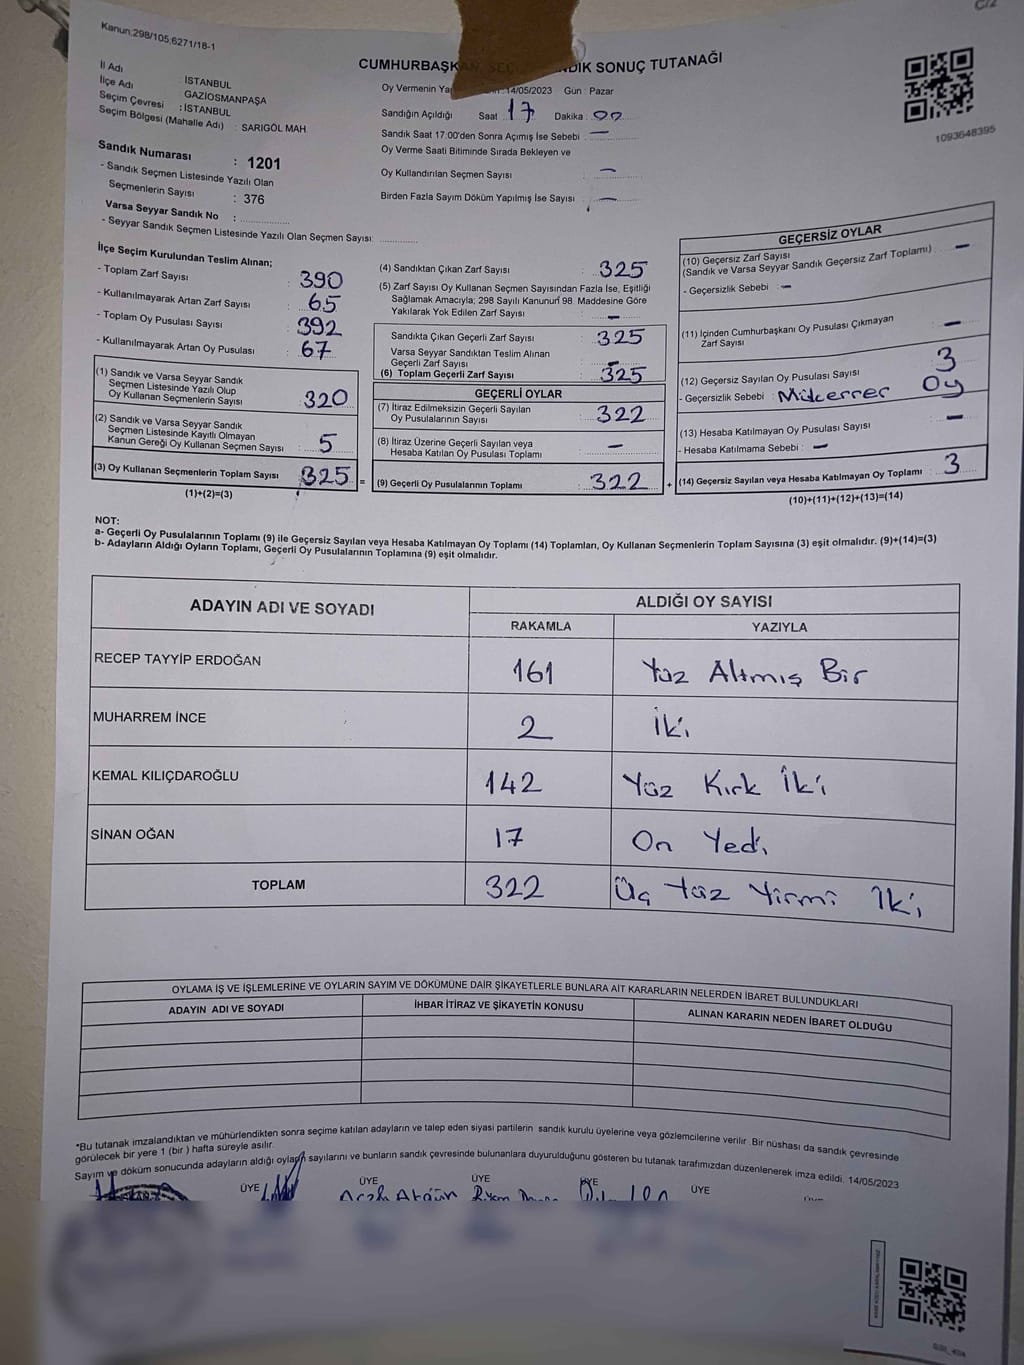 Kanun:298/105;6271/18-1
C/2
CUMHURBAŞKA SEÇ NDIK SONUÇ TUTANAĞI
İl Adı : İSTANBUL
İlçe Adı : GAZİOSMANPAŞA
Seçim Çevresi : İSTANBUL
Seçim Bölgesi (Mahalle Adı) : SARIGÖL MAH.
Oy Vermenin Ya 14/05/2023 Gün : Pazar
Sandığın Açıldığı Saat 17 Dakika 00
Sandık Saat 17:00'den Sonra Açımış İse Sebebi : —
Oy Verme Saati Bitiminde Sırada Bekleyen ve
Oy Kullandırılan Seçmen Sayısı : —
Birden Fazla Sayım Döküm Yapılmış İse Sayısı : —
1093648395
Sandık Numarası : 1201
- Sandık Seçmen Listesinde Yazılı Olan
Seçmenlerin Sayısı : 376
Varsa Seyyar Sandık No :
- Seyyar Sandık Seçmen Listesinde Yazılı Olan Seçmen Sayısı:
İlçe Seçim Kurulundan Teslim Alınan;
- Toplam Zarf Sayısı : 390
- Kullanılmayarak Artan Zarf Sayısı : 65
- Toplam Oy Pusulası Sayısı : 392
- Kullanılmayarak Artan Oy Pusulası : 67
(1) Sandık ve Varsa Seyyar Sandık
Seçmen Listesinde Yazılı Olup
Oy Kullanan Seçmenlerin Sayısı : 320
(2) Sandık ve Varsa Seyyar Sandık
Seçmen Listesinde Kayıtlı Olmayan
Kanun Gereği Oy Kullanan Seçmen Sayısı : 5
(3) Oy Kullanan Seçmenlerin Toplam Sayısı : 325 =
(1)+(2)=(3)
(4) Sandıktan Çıkan Zarf Sayısı : 325
(5) Zarf Sayısı Oy Kullanan Seçmen Sayısından Fazla İse, Eşitliği
Sağlamak Amacıyla; 298 Sayılı Kanunun 98. Maddesine Göre
Yakılarak Yok Edilen Zarf Sayısı : —
Sandıkta Çıkan Geçerli Zarf Sayısı : 325
Varsa Seyyar Sandıktan Teslim Alınan
Geçerli Zarf Sayısı : —
(6) Toplam Geçerli Zarf Sayısı : 325
GEÇERLİ OYLAR
(7) İtiraz Edilmeksizin Geçerli Sayılan
Oy Pusulalarının Sayısı : 322
(8) İtiraz Üzerine Geçerli Sayılan veya
Hesaba Katılan Oy Pusulası Toplamı : —
(9) Geçerli Oy Pusulalarının Toplamı : 322 +
GEÇERSİZ OYLAR
(10) Geçersiz Zarf Sayısı
(Sandık ve Varsa Seyyar Sandık Geçersiz Zarf Toplamı) : —
- Geçersizlik Sebebi : —
(11) İçinden Cumhurbaşkanı Oy Pusulası Çıkmayan
Zarf Sayısı : —
(12) Geçersiz Sayılan Oy Pusulası Sayısı : 3
- Geçersizlik Sebebi : Mükerrer Oy
(13) Hesaba Katılmayan Oy Pusulası Sayısı : —
- Hesaba Katılmama Sebebi : —
(14) Geçersiz Sayılan veya Hesaba Katılmayan Oy Toplamı : 3
(10)+(11)+(12)+(13)=(14)
NOT:
a- Geçerli Oy Pusulalarının Toplamı (9) ile Geçersiz Sayılan veya Hesaba Katılmayan Oy Toplamı (14) Toplamları, Oy Kullanan Seçmenlerin Toplam Sayısına (3) eşit olmalıdır. (9)+(14)=(3)
b- Adayların Aldığı Oyların Toplamı, Geçerli Oy Pusulalarının Toplamına (9) eşit olmalıdır.
ADAYIN ADI VE SOYADI ALDIĞI OY SAYISI
RAKAMLA YAZIYLA
RECEP TAYYİP ERDOĞAN 161 Yüz Altmış Bir
MUHARREM İNCE 2 İki
KEMAL KILIÇDAROĞLU 142 Yüz Kırk İki
SİNAN OĞAN 17 On Yedi
TOPLAM 322 Üç Yüz Yirmi İki
OYLAMA İŞ VE İŞLEMLERİNE VE OYLARIN SAYIM VE DÖKÜMÜNE DAİR ŞİKAYETLERLE BUNLARA AİT KARARLARIN NELERDEN İBARET BULUNDUKLARI
ADAYIN ADI VE SOYADI İHBAR İTİRAZ VE ŞİKAYETİN KONUSU ALINAN KARARIN NEDEN İBARET OLDUĞU
*Bu tutanak imzalandıktan ve mühürlendikten sonra seçime katılan adayların ve talep eden siyasi partilerin sandık kurulu üyelerine veya gözlemcilerine verilir. Bir nüshası da sandık çevresinde
görülecek bir yere 1 (bir) hafta süreyle asılır.
Sayım ve döküm sonucunda adayların aldığı oyların sayılarını ve bunların sandık çevresinde bulunanlara duyurulduğunu gösteren bu tutanak tarafımızdan düzenlenerek imza edildi. 14/05/2023
ÜYE ÜYE ÜYE ÜYE ÜYE